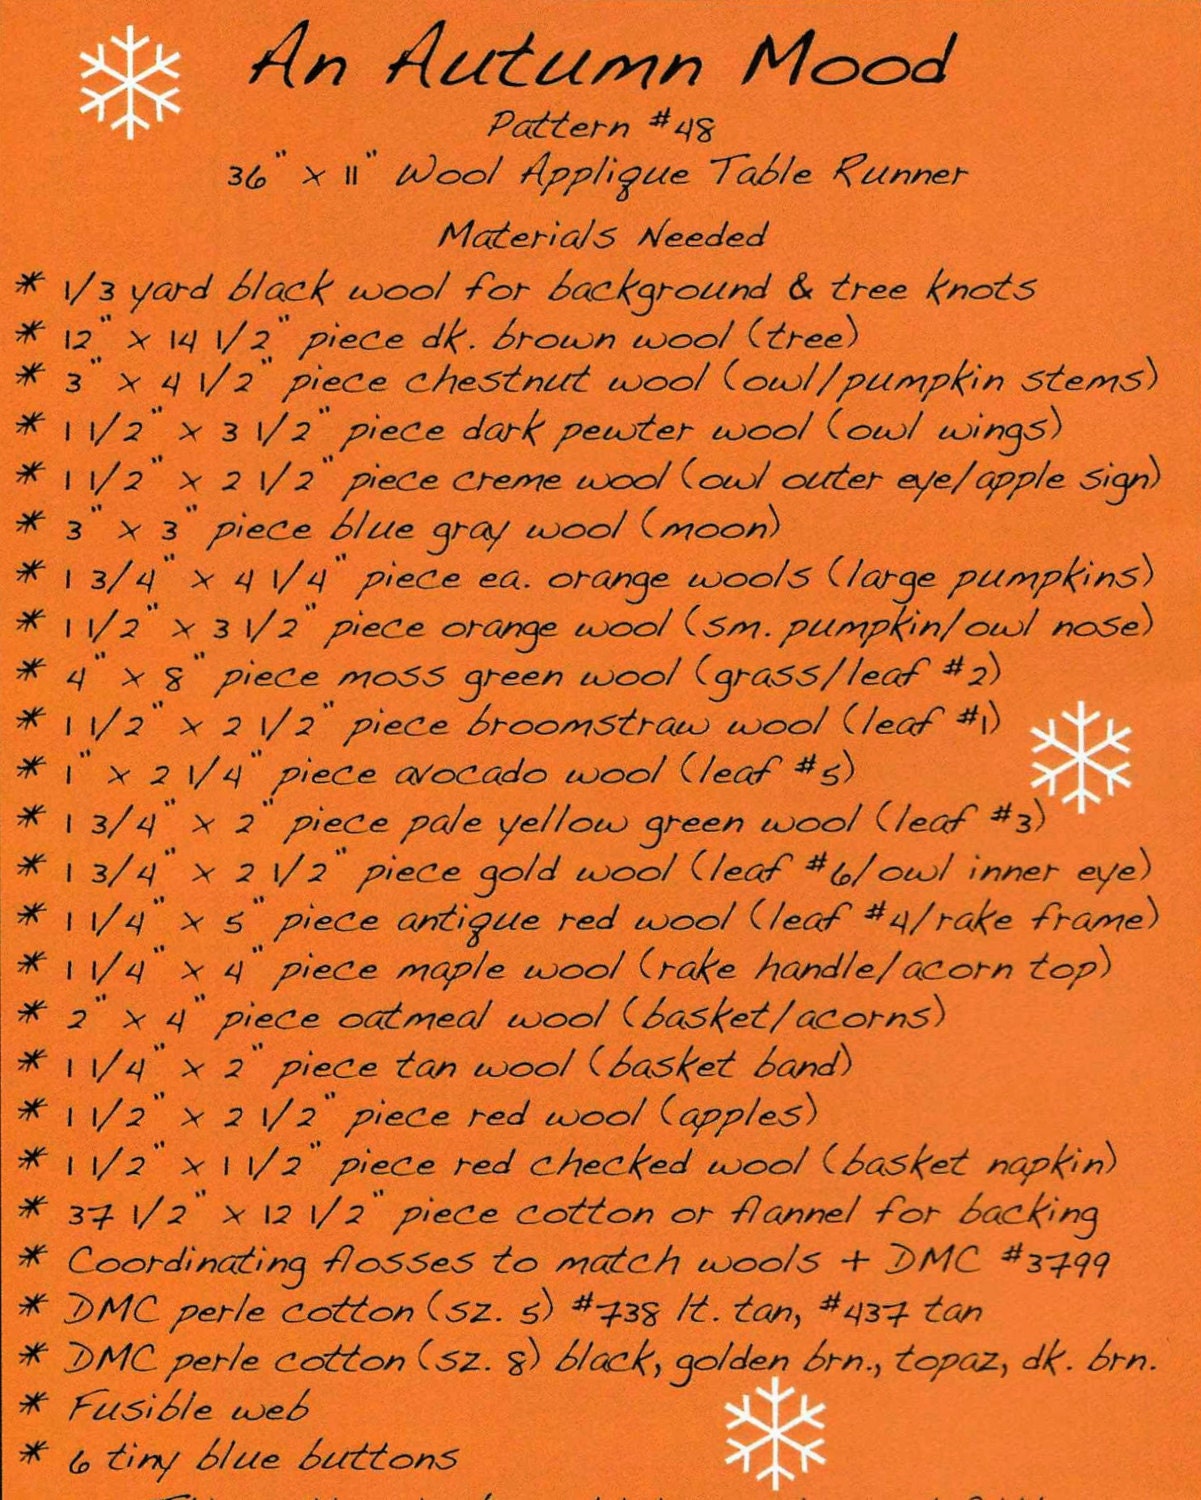 An Autumn Mood
Pattern #48
36" x 11" Wool Applique Table Runner
Materials Needed
* 1/3 yard black wool for background & tree knots
* 12" x 14 1/2" piece dk. brown wool (tree)
* 3" x 4 1/2" piece chestnut wool (owl/pumpkin stems)
* 1 1/2" x 3 1/2" piece dark pewter wool (owl wings)
* 1 1/2" x 2 1/2" piece creme wool (owl outer eye/apple sign)
* 3" x 3" piece blue gray wool (moon)
* 1 3/4" x 4 1/4" piece ea. orange wools (large pumpkins)
* 1 1/2" x 3 1/2" piece orange wool (sm. pumpkin/owl nose)
* 4" x 8" piece moss green wool (grass/leaf #2)
* 1 1/2" x 2 1/2" piece broomstraw wool (leaf #1)
* 1" x 2 1/4" piece avocado wool (leaf #5)
* 1 3/4" x 2" piece pale yellow green wool (leaf #3)
* 1 3/4" x 2 1/2" piece gold wool (leaf #6/owl inner eye)
* 1 1/4" x 5" piece antique red wool (leaf #4/rake frame)
* 1 1/4" x 4" piece maple wool (rake handle/acorn top)
* 2" x 4" piece oatmeal wool (basket/acorns)
* 1 1/4" x 2" piece tan wool (basket band)
* 1 1/2" x 2 1/2" piece red wool (apples)
* 1 1/2" x 1 1/2" piece red checked wool (basket napkin)
* 37 1/2" x 12 1/2" piece cotton or flannel for backing
* Coordinating flosses to match wools + DMC #3799
* DMC perle cotton (sz. 5) #738 lt. tan, #437 tan
* DMC perle cotton (sz. 8) black, golden brn., topaz, dk. brn.
* Fusible web
* 6 tiny blue buttons